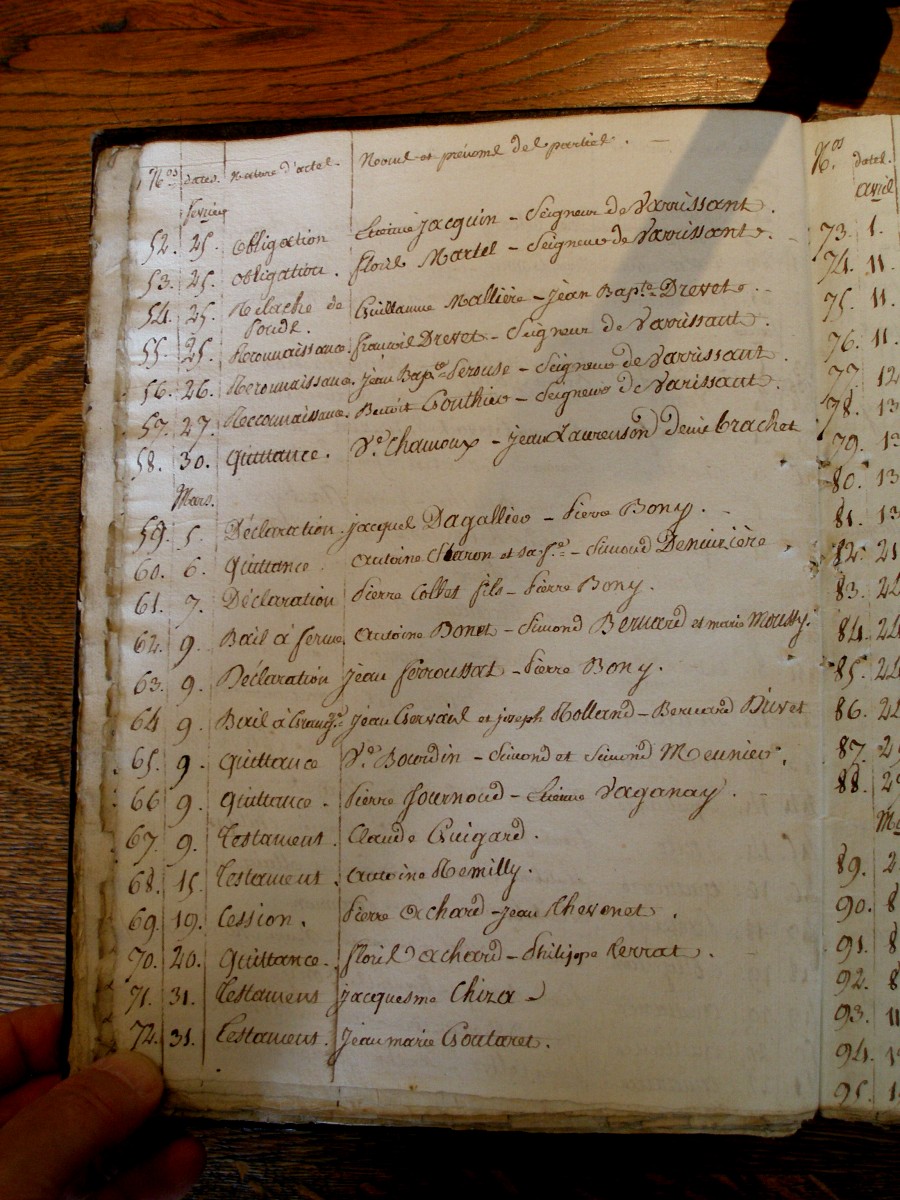 Nos dates. Nature d'actes. Noms et prénoms des parties.
février
52. 25. Obligation Etienne Jacquin - Seigneur de Varrissant.
53. 25. Obligation. Floris Martel - Seigneur de Varrissant.
54. 25. Relache de Guillaume Mallière - Jean Bapte Drevet.
fonds.
55. 25. Reconnaissance. François Drevet - Seigneur de Varrissant.
56. 26. Reconnaissance. Jean Bapte - Seigneur de Varrissant.
57. 27. Reconnaissance. Benoit Gouthier - Seigneur de Varissant.
58. 30. Quittance. Ve Chamoux - Jean Laurenson Denis brachet
Mars.
59. 5. Déclaration. Jacques Dagallier - Pierre Bony.
60. 6. Quittance. Antoine Charon et sa fe - Simond Deniurière
61. 7. Déclaration Pierre Collet fils - Pierre Bony.
62. 9. Bail à ferme. Antoine Donet - Simond Bernard et marie Moussy.
63. 9. Déclaration Jean ferroussat - Pierre Bony.
64 9. Bail à Grange Jean Gervais et joseph Rolland - Bernard Duvet
65. 9. Quittance Ve Bourdin - Simond et Simond Meunier.
66 9. Quittance. Pierre Journoud - Etienne Vaganay.
67. 9. Testament. Claude Guigard.
68. 15. Testament. Antoine Remilly.
69. 19. Cession. Pierre Achard - Jean Thevenet.
70. 20. Quittance. Floris Achard - Philippe Perrat.
71. 31. Testament Jacquesme Chiza
72. 31. Testament. Jeanmarie Goutaret.
Nos dates.
avril
73. 1.
74. 11.
75. 11.
76. 11.
77. 12
78. 13
79. 13
80. 13
81. 13
82. 21
83. 22
84. 22
85. 22
86. 22
87. 2
88. 2
89. 2
90. 8
91. 8
92. 8
93. 11
94. 1
95. 1